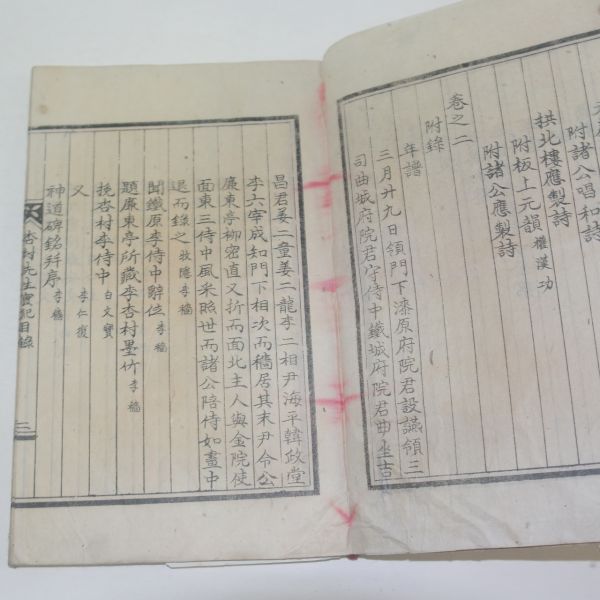 附諸公唱和詩
拱北樓應製詩
附板上元韻 權漢功
附諸公應製詩
卷之二
附錄
年譜
三月廿九日領門下漆原府院君設讌領三
司曲城府院君守侍中鐵城府院君曲坐吉
昌君姜二童姜二龍李二相尹海平韓政堂
李六宰成知門下相次而穡居其末尹令公
廉東亭柳密直又折而面北主人與金院使
面東三侍中風采照世而諸公陪侍如畫中
退而錄之 牧隱李穡
聞鐵原李侍中辭位 李穡
題廉東亭所藏李杏村墨竹 李穡
挽杏村李侍中 白文寶
又 李仁復
神道碑銘幷序 李穡
杏村先生實紀目錄
三